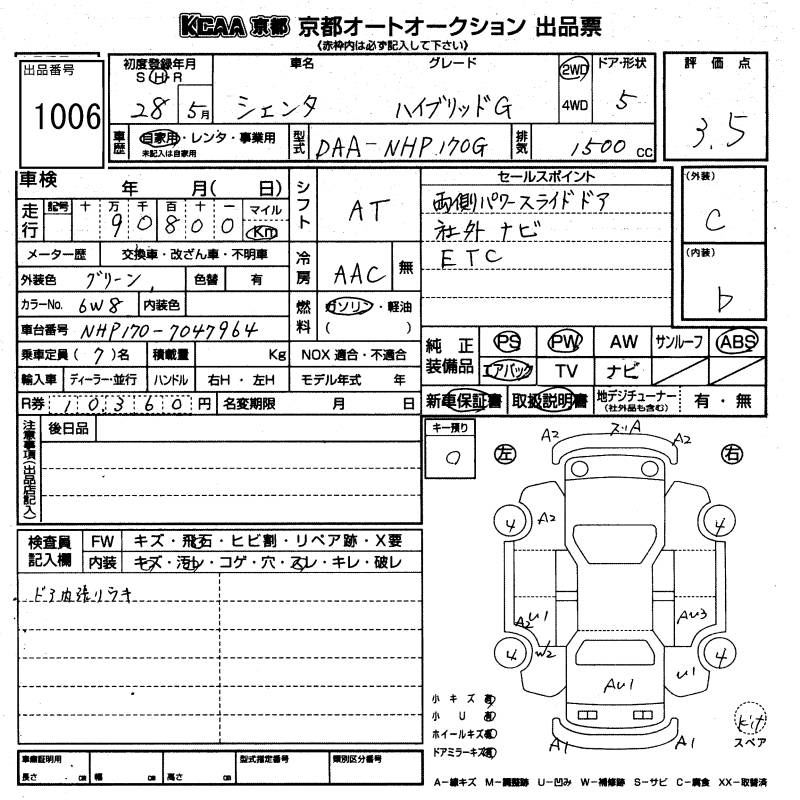 KCAA 京都 京都オートオークション 出品票
《赤枠内は必ず記入して下さい》
出品番号
1006
初度登録年月 車名 グレード 2WD ドア・形状
S H R
28 5月 シェンタ ハイブリッドG 4WD 5
評価点
3.5
車歴 自家用・レンタ・事業用
未記入は自家用
型式 DAA-NHP170G 排気 1500 cc
車検 年 月( 日)
走行 記号 十 万 千 百 十 一 マイル
9 0 8 0 0 Km
シフト AT
メーター歴 交換車・改ざん車・不明車
外装色 グリーン 色替 有
冷房 AAC 無
カラーNo. 6W8 内装色
燃料 ガソリン・軽油
( )
車台番号 NHP170-7047964
乗車定員(7)名 積載量 Kg NOX適合・不適合
輸入車 ディーラー・並行 ハンドル 右H・左H モデル年式 年
R券 10360円 名変期限 月 日
セールスポイント
両側パワースライドドア
社外ナビ
ETC
(外装)
C
(内装)
b
純正装備品 PS PW AW サンルーフ ABS
エアバック TV ナビ
新車保証書 取扱説明書 地デジチューナー(社外品も含む) 有・無
注意事項(出品店記入)
後日品
キー預り
0
左
右
検査員記入欄
FW キズ・飛石・ヒビ割・リペア跡・X要
内装 キズ・汚レ・コゲ・穴・スレ・キレ・破レ
ドア内張リラキ
A2 スリA A2
4 A2 4
A2 U1 AU3
4 W2 U1 4
AU1
A1 A1
小キズ有
小U有
ホイールキズ有
ドアミラーキズ有
kit
スペア
車庫証明用
長さ cm 幅 cm 高さ cm
型式指定番号
類別区分番号
A-線キズ M-調整跡 U-凹み W-補修跡 S-サビ C-腐食 XX-取替済